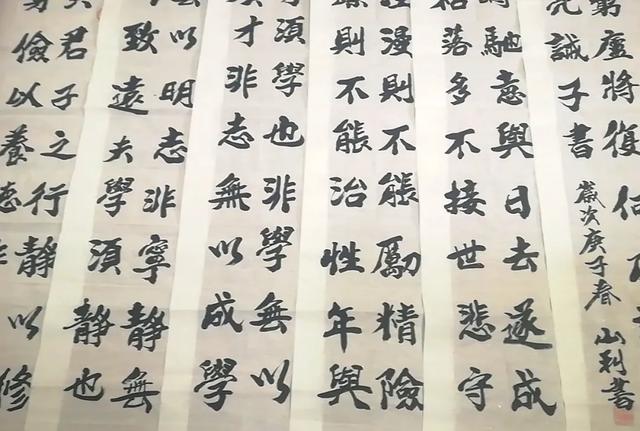 君子之行靜以修
儉以養
以明志非寧靜無
致遠夫學須靜也
須學也非學無以
才非志無以成學
漫則不能勵精險
則不能治性年與
馳意與日去遂成
落多不接世悲守
窮廬將復何
亮誡子書
歲次庚子春 山利書